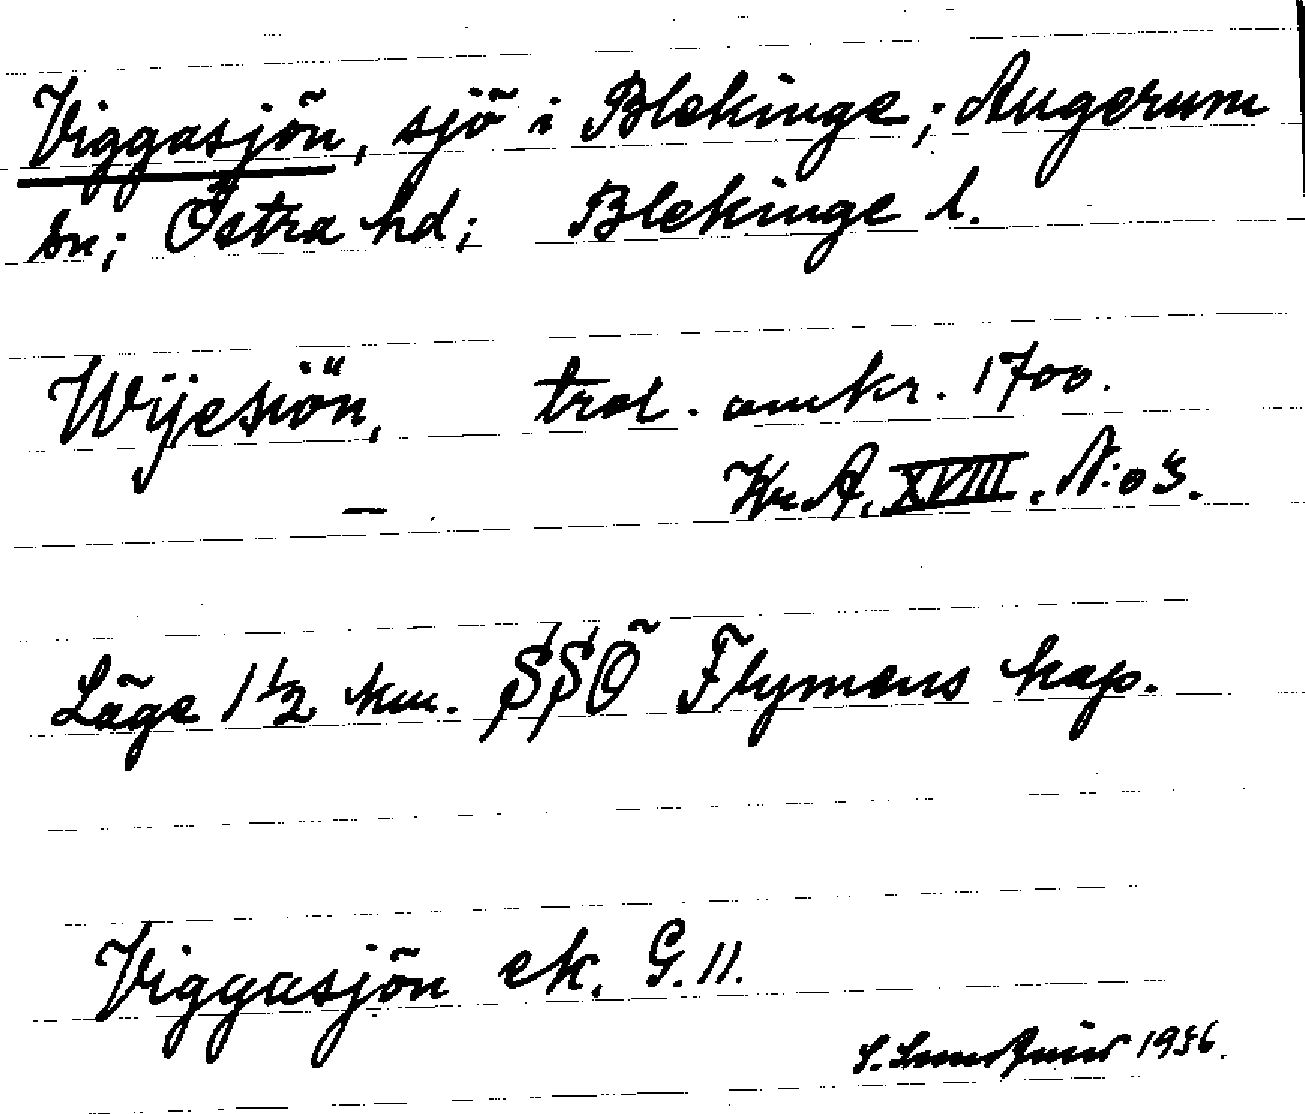 Viggasjön, sjö i Blekinge; Augerum
sn; Östra hd; Blekinge l.
Wijesiön, trol. omkr. 1700.
Kr. A. XVIII. N:o 3.
Läge 1 1/2 km. SSÖ Flymens kap.
Viggasjön ek. G. 11.
S. 1936.